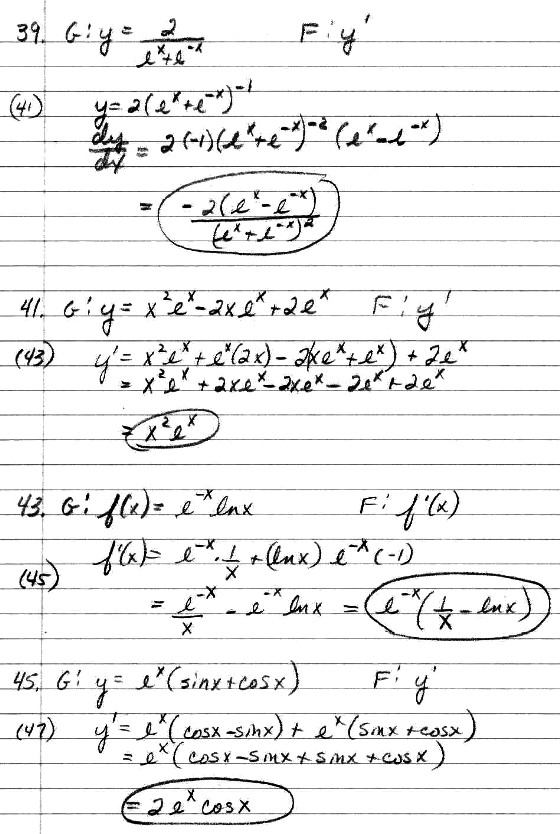 39. G: y = 2/(e^x+e^-x) F: y'
(41) y=2(e^x+e^-x)^-1
dy/dx = 2(-1)(e^x+e^-x)^-2 (e^x-e^-x)
= -2(e^x-e^-x)/(e^x+e^-x)^2
41. G: y = x^2e^x-2xe^x+2e^x F: y'
(43) y'= x^2e^x+e^x(2x)-2(xe^x+e^x)+2e^x
= x^2e^x+2xe^x-2xe^x-2e^x+2e^x
= x^2e^x
43. G: f(x)= e^-x lnx F: f'(x)
f'(x)= e^-x · 1/x + (lnx) e^-x (-1)
(45) = e^-x/x - e^-x lnx = e^-x(1/x - lnx)
45. G: y = e^x(sinx+cosx) F: y'
(47) y'= e^x(cosx-sinx) + e^x(sinx+cosx)
= e^x(cosx-sinx+sinx+cosx)
= 2e^x cosx